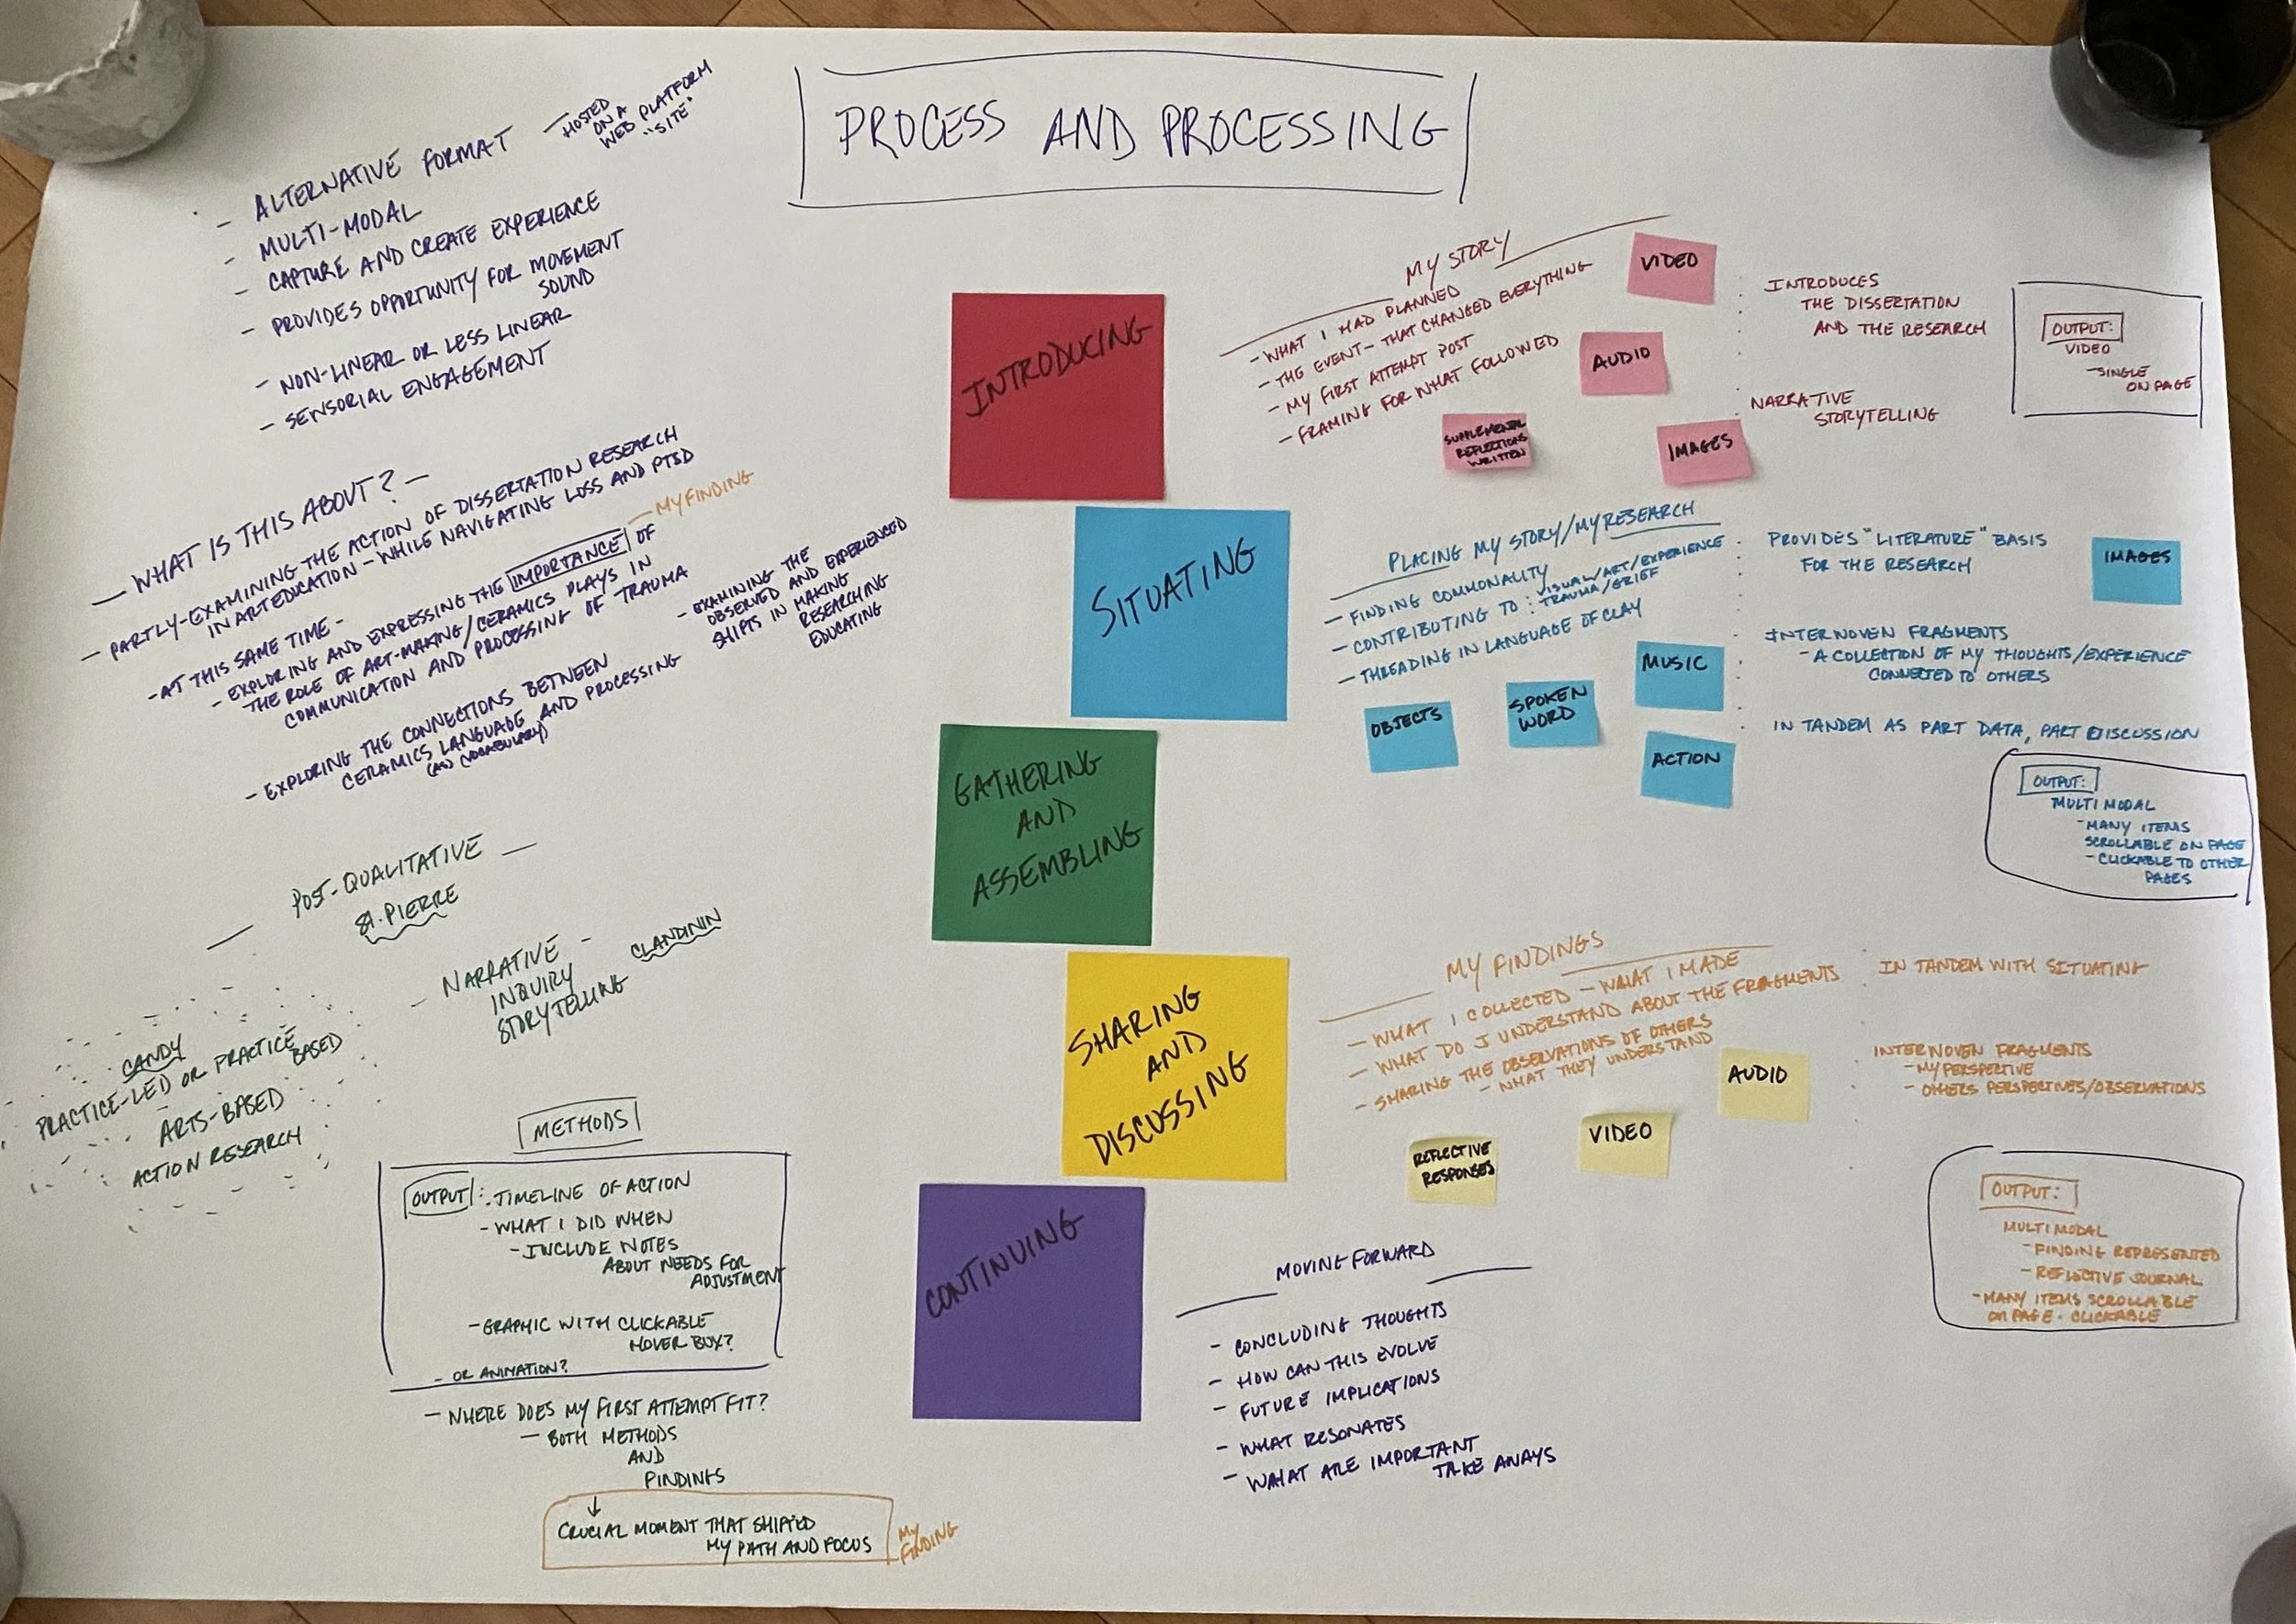 PROCESS AND PROCESSING
- ALTERNATIVE FORMAT - HOSTED
ON A
WEB PLATFORM
"SITE"
- MULTI-MODAL
- CAPTURE AND CREATE EXPERIENCE
- PROVIDES OPPORTUNITY FOR MOVEMENT
SOUND
- NON-LINEAR OR LESS LINEAR
- SENSORIAL ENGAGEMENT
- WHAT IS THIS ABOUT? -
- PARTLY-EXAMINING THE ACTION OF DISSERTATION RESEARCH
IN ART EDUCATION - WHILE NAVIGATING LOSS AND PTSD
- AT THIS SAME TIME -
- EXPLORING AND EXPRESSING THE IMPORTANCE OF
- MY FINDING
THE ROLE OF ART-MAKING/CERAMICS PLAYS IN
COMMUNICATION AND PROCESSING OF TRAUMA
- EXPLORING THE CONNECTIONS BETWEEN
CERAMICS LANGUAGE AND PROCESSING
(AS VOCABULARY)
- EXAMINING THE
OBSERVED AND EXPERIENCED
SHIFTS IN MAKING
RESEARCHING
EDUCATING
- POST-QUALITATIVE -
ST. PIERRE
- NARRATIVE -
INQUIRY
STORYTELLING
CLANDININ
CANDY
PRACTICE-LED OR PRACTICE
BASED
ARTS-BASED
ACTION RESEARCH
METHODS
OUTPUT: TIMELINE OF ACTION
- WHAT I DID WHEN
- INCLUDE NOTES
ABOUT NEEDS FOR
ADJUSTMENT
- GRAPHIC WITH CLICKABLE
HOVER BOX?
- OR ANIMATION?
- WHERE DOES MY FIRST ATTEMPT FIT?
- BOTH METHODS
AND
FINDINGS
↓
CRUCIAL MOMENT THAT SHIFTED
MY PATH AND FOCUS
MY
FINDING
INTRODUCING
MY STORY
- WHAT I HAD PLANNED
- THE EVENT - THAT CHANGED EVERYTHING
- MY FIRST ATTEMPT POST
- FRAMING FOR WHAT FOLLOWED
VIDEO
AUDIO
SUPPLEMENTAL
REFLECTIONS
WRITTEN
IMAGES
INTRODUCES
THE DISSERTATION
AND THE RESEARCH
NARRATIVE
STORYTELLING
OUTPUT:
VIDEO
- SINGLE
ON PAGE
SITUATING
PLACING MY STORY/MY RESEARCH
- FINDING COMMONALITY
- CONTRIBUTING TO: VISUAL/ART/EXPERIENCE
TRAUMA/GRIEF
- THREADING IN LANGUAGE OF CLAY
OBJECTS
SPOKEN
WORD
MUSIC
ACTION
PROVIDES "LITERATURE" BASIS
FOR THE RESEARCH
IMAGES
INTERWOVEN FRAGMENTS
- A COLLECTION OF MY THOUGHTS/EXPERIENCE
CONNECTED TO OTHERS
IN TANDEM AS PART DATA, PART DISCUSSION
OUTPUT:
MULTIMODAL
- MANY ITEMS
SCROLLABLE ON PAGE
- CLICKABLE TO OTHER
PAGES
GATHERING
AND
ASSEMBLING
SHARING
AND
DISCUSSING
MY FINDINGS
- WHAT I COLLECTED - WHAT I MADE
- WHAT DO I UNDERSTAND ABOUT THE FRAGMENTS
- SHARING THE OBSERVATIONS OF OTHERS
- WHAT THEY UNDERSTAND
REFLECTIVE
RESPONSES
VIDEO
AUDIO
IN TANDEM WITH SITUATING
INTERWOVEN FRAGMENTS
- MY PERSPECTIVE
- OTHERS PERSPECTIVES/OBSERVATIONS
OUTPUT:
MULTIMODAL
- FINDING REPRESENTED
- REFLECTIVE JOURNAL
- MANY ITEMS SCROLLABLE
ON PAGE · CLICKABLE
CONTINUING
MOVING FORWARD
- CONCLUDING THOUGHTS
- HOW CAN THIS EVOLVE
- FUTURE IMPLICATIONS
- WHAT RESONATES
- WHAT ARE IMPORTANT
TAKE AWAYS